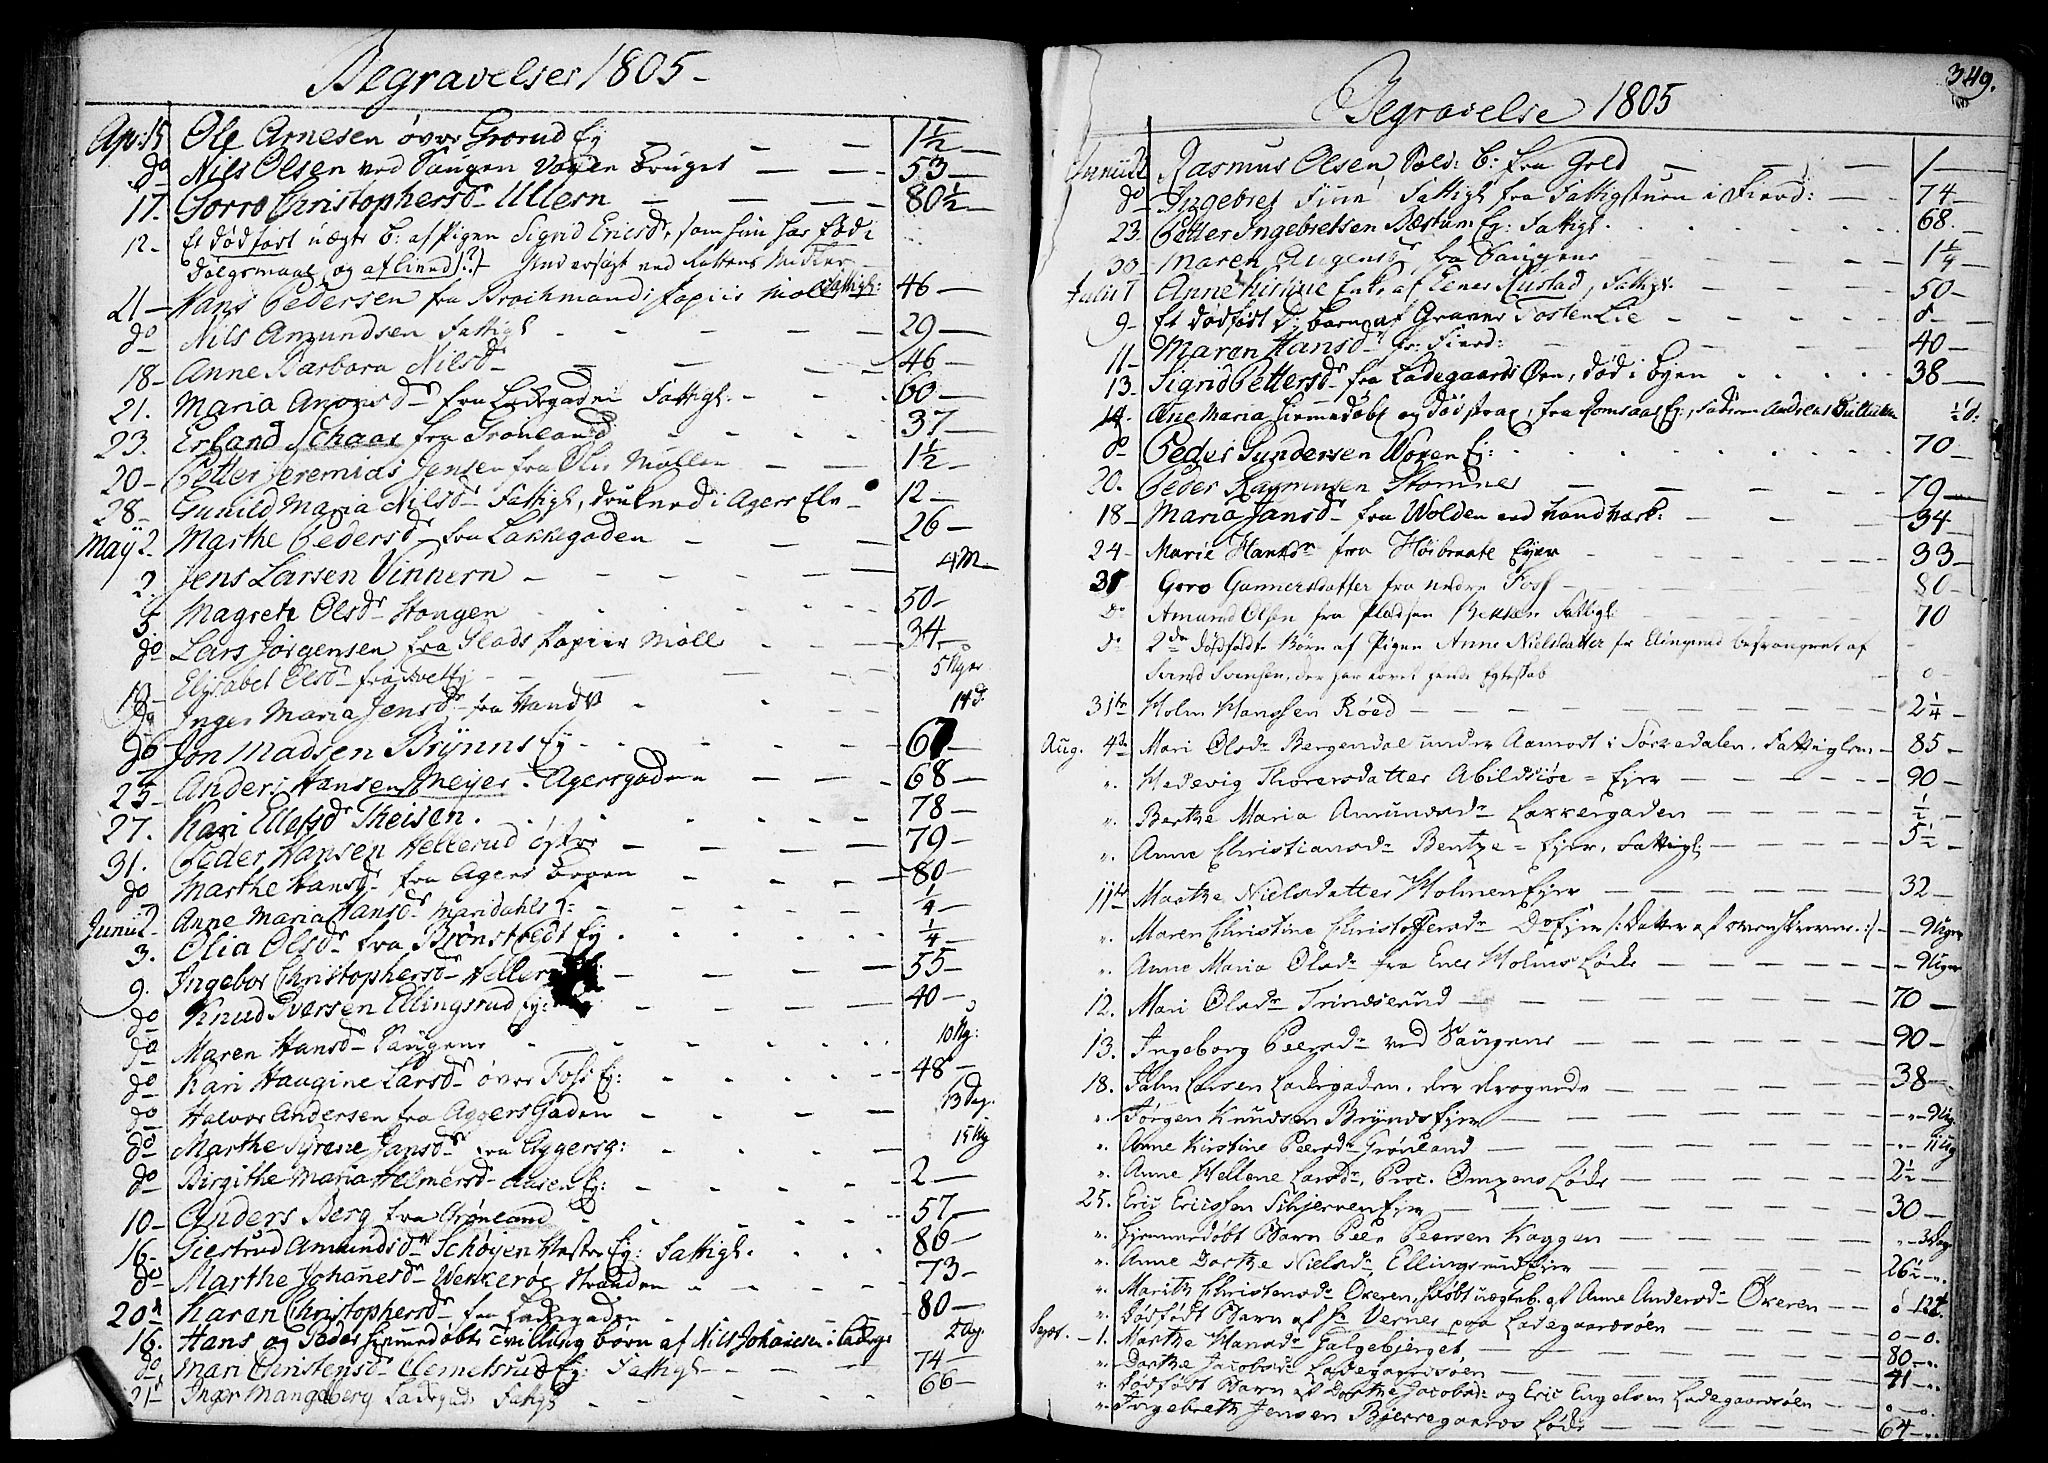 Begravelser 1805 -
Ap: 15 Ole Arnesen övre Grorud Ej - - - 1½ -
do Nils Olsen ved Saugen Voxen bruget - - - 53 -
17. Gorro Christophersd. Ullern - - - - 80½ -
12 - Et dödfört uægte b: af Pigen Sigrid Ericsd., som hun har föd i
Dölgsmaal (og aflived)(?)
21 - Hans Pedersen fra Brochmands Papiir Mölle Fattigl: 46 -
do Nils Amundsen Fattigl - - - - 29 -
18 - Anne Barbara Nilsd. - - - 46 -
21. Maria Amonsd. fra Ladegaden Fattigl. - - - 60 -
23. Erland Schaas fra Grönland - - - 37 -
20 - Petter Jeremias Jensen fra Möllen - - 1½ -
28 - Gunild Maria Nilsd. Fattigl, druknede i Agers Elv - 12 -
May 2. Marthe Pedersd. fra Lakkegaden - - - 26 -
2. Jens Larsen Vinnern - - - - - 4 M -
5 - Magrete Olsd. Stongen - - - - 50 -
do Lars Jörgensen fra Glads Papiir Möll - - - 34 -
19 - Elisabet Olsd. fra Tvet Ej - - - 5 Uger
do Inger Maria Jensd. fra - - - 14 d.
do Jon Madsen Brÿnns Ej - - - 67 -
25 - Anders Hansen Meijer - Agersgaden - - - 68 -
27. Kari Ellefsd. Theisen. - - - 78 -
31. Peder Hansen Hellerud östre - - - 79 -
do Marthe Hansd. fra Agers Broen - - - 80 -
Junii 2 - Anne Maria Hansd. Maridahls - - - ¼ -
3. Olia Olsd. fra Brönstedt Ej - - - ¼ -
9. Ingebor Christophersd. Heller - - - 55 -
do Knud Iversen Ellingsrud Ej: - - - 40 -
do Maren Hansd. Saugene - - - 10 Ug:
do Kari Haugine Larsd. övre Foss Ej: - - - 48 -
do Halvor Andersen fra Aggers Gaden - - - 13 Dag.
do Marthe Syrene Jansd. fra Aggersg: - - - 15 Ug
do Birgithe Maria Helmersd. Aasen Ej: - - - 2 -
10 - Anders Berg fra Grönland - - - 57 -
16 - Siertrud Amundsd. Schöyen Ej: Fattigl. - - - 86 -
do Marthe Johanesd. Wækeröe Stranden - - - 73 -
20 Karen Christophersd. fra Ladegaden - - - 80 -
16. Hans og Peder hiemedöbte Tvilling börn af Nils Johanesen i Ladeg: 2 Dag.
do Mari Christensd. Clemetsrud Ej: Fattigl. - - - 74 -
21 - Inger Mangelberg Ladegad. Fatigl. - - - 66 -
349.
Begravelse 1805
Junii 22 Rasmus Olsen Sold: b: fra Gold - - - 1 -
do Ingebret Finne Fattigl fra Fattigstuen i Fierd: - - 74 -
23. Petter Ingebretsen Bærtum Ej: Fattigl. . . . 68 -
30 - Maren Augensd. fra Saugene - - - 1¼ -
Julii 7 Anne Kirstine Enke af Eenes Rustad, Fattigl. - - 50 -
9 - Et dödföst D: barn af Granner Tosten Lie - - - 0 -
11 - Maren Hansd. fr: Fierd: - - - 40 -
13. Sigrid Pettersd. fra Ladegaards Öen, död i byen - - - 38 -
14. Ane Maria hiemedöbt og död strax, fra Romsaas Ej:, Faderen Andreas ½ d:
do Peder Gundersen Woxen Ej: - - - 70 -
20. Peder Rasmusen Stomner - - - 79 -
18 - Maria Jansd. fra Wolden ved - - - 34 -
24 - Marie Hansdr. fra Höibraate Ejer - - - 33 -
31 Goro Gunnersdatter fra nedre Foss - - - 80 -
do Amund Olsen fra Pladsen Bekken Fattigl - - - 70
do 2de Dødfødte Börn af Pigen Anne Nielsdatter fr Elingsrud besvangret af
Svend Svensen, der har lovet hende Egteskab - 0 -
31te Holm Hanssen Röed - - - 2¼ -
Aug. 4de Mari Olsdr. Bergendal under Aamodt i Sörkedalen. Fattiglem - 85 -
". Hedevig Thorersdatter Abildsöe - Ejer - - - 90 -
". Berthe Maria Amundsdr. Lakkergaden - - - ½ -
". Anne Christiansdr. Bentze - Ejer, Fattigl. - - - 5½ -
11te Marthe Nielsdatter Holmen Ejer - - - 32 -
". Maren Christine Christoffersdr. Do Ejer /: Datter af ovenskrevne :/ - 9 Uger
". Anne Maria Olsdr. fra Enes Holms Løcke - - - 9 Uger
12. Mari Olsdr. Trindserud - - - 70 -
13. Ingeborg Peersdr. ved Saugene - - - 90 -
18. Halm Larsen Ladegaden, der - - - 38 -
". Jörgen Knudsen Brynds Ejer - - - 9 Ug.
". Anne Kirstine Peersdr. Grönland - - - 11 Ug
". Anne Hellene Larsdr. Proc. Omsens Løcke - - - 2½ -
25. Eric Ericksen Skjerven Ejer - - - 30 -
". Hjemmedöbt Barn Peer Peersen Kaggen - - - 3 Dage
". Anne Dorthe Nielsdr. Ellingsrud Ejer - - - 26½ -
". Marith Christensdr. Økeren, döbt uægteb. af Anne Andersdr. Økeren - - 0 12
". Dödfödt Barn af Hr. Verner paa Ladegaardsöen - - - 0 - 0.
Sept. - 1. Marthe Hansdr. Galgebjerget - - - 80 -
". Dorthe Jacobsdr. Ladegaardsöen - - - 41 -
". Dödfödt Barn af Dorthe Jacobsdr. og Eric Engelsen Ladegaardsöen - - 0 - 0.
". Ingebreth Jensen Bjerregaards Løcke - - - 64 -